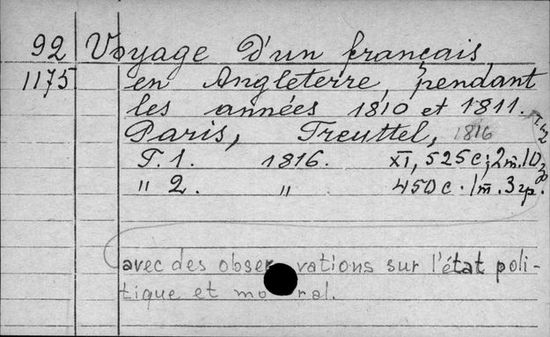 92 Voyage D'un français
1175 en Angleterre, pendant
les années 1810 et 1811.
Paris, Treuttel, 1816
T. 1. 1816. XI, 525 c; 2 m. 10
" 2. " 450 c. 1 m. 3 гр.
avec des obser vations sur l'état poli-
tique et mo ral.